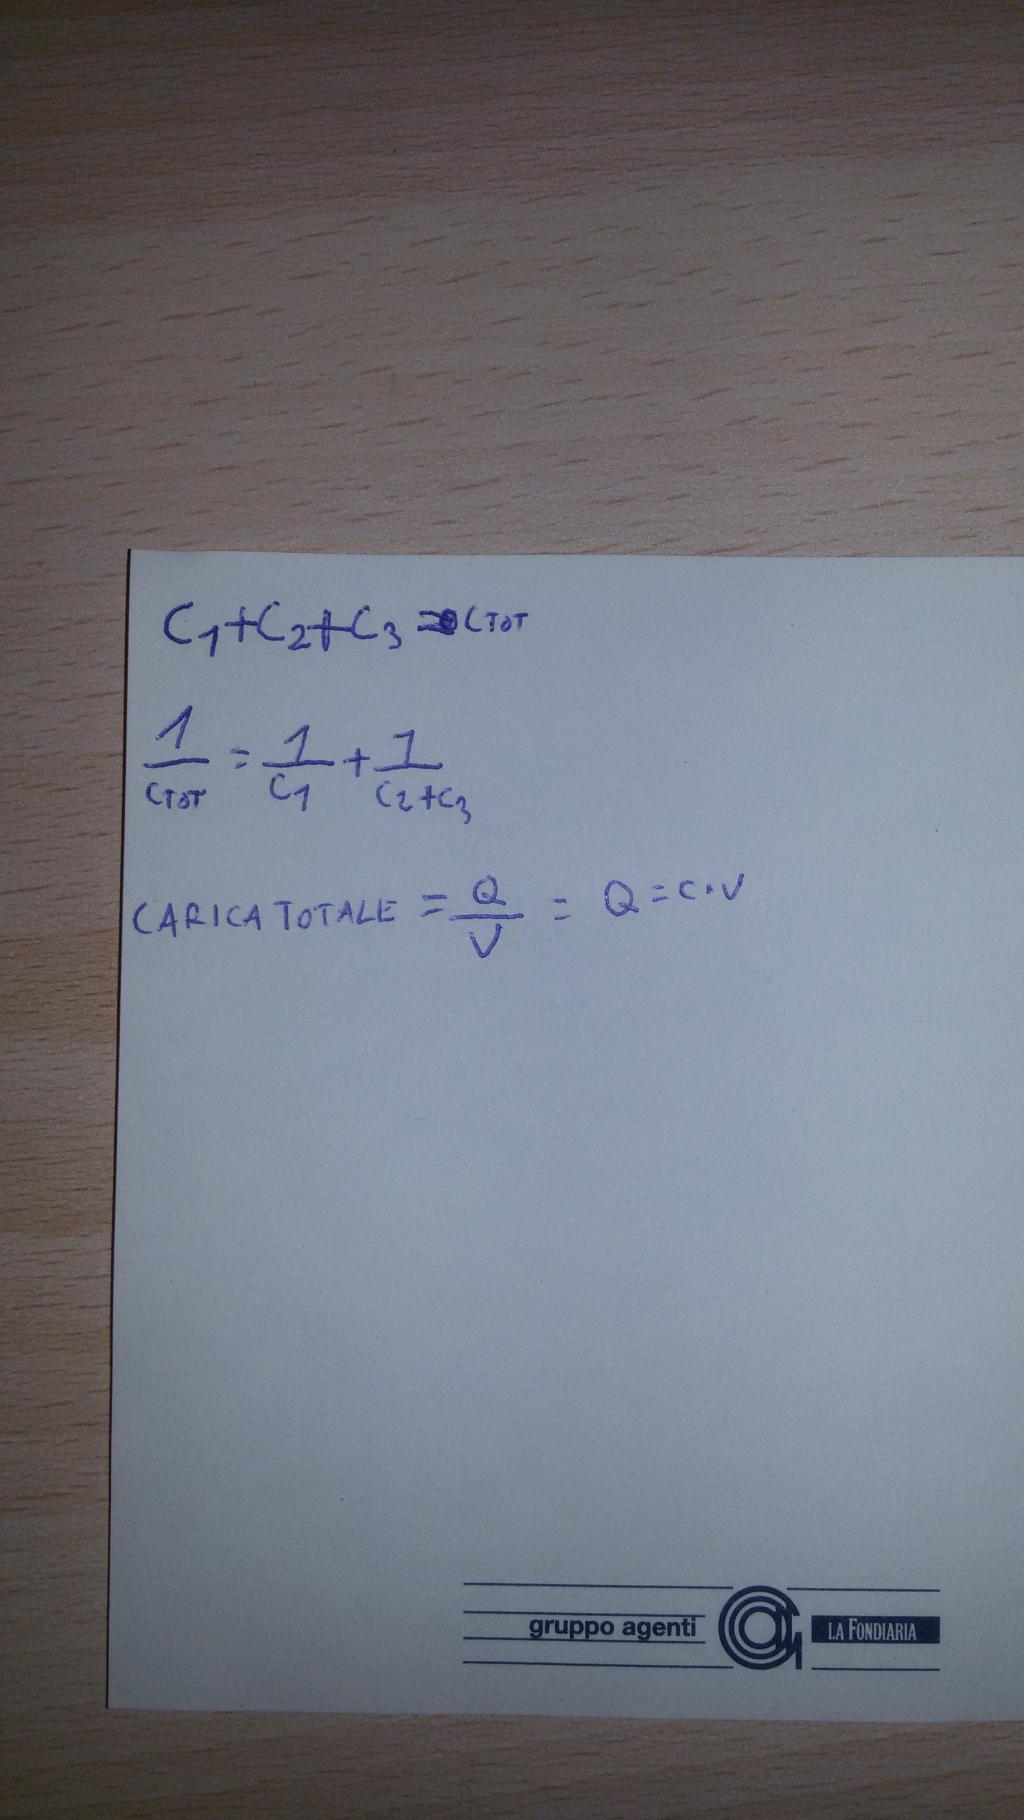 C₁+C₂+C₃ => CTOT
1/CTOT = 1/C₁ + 1/C₂+C₃
CARICA TOTALE = Q/V = Q=C·V
gruppo agenti LA FONDIARIA